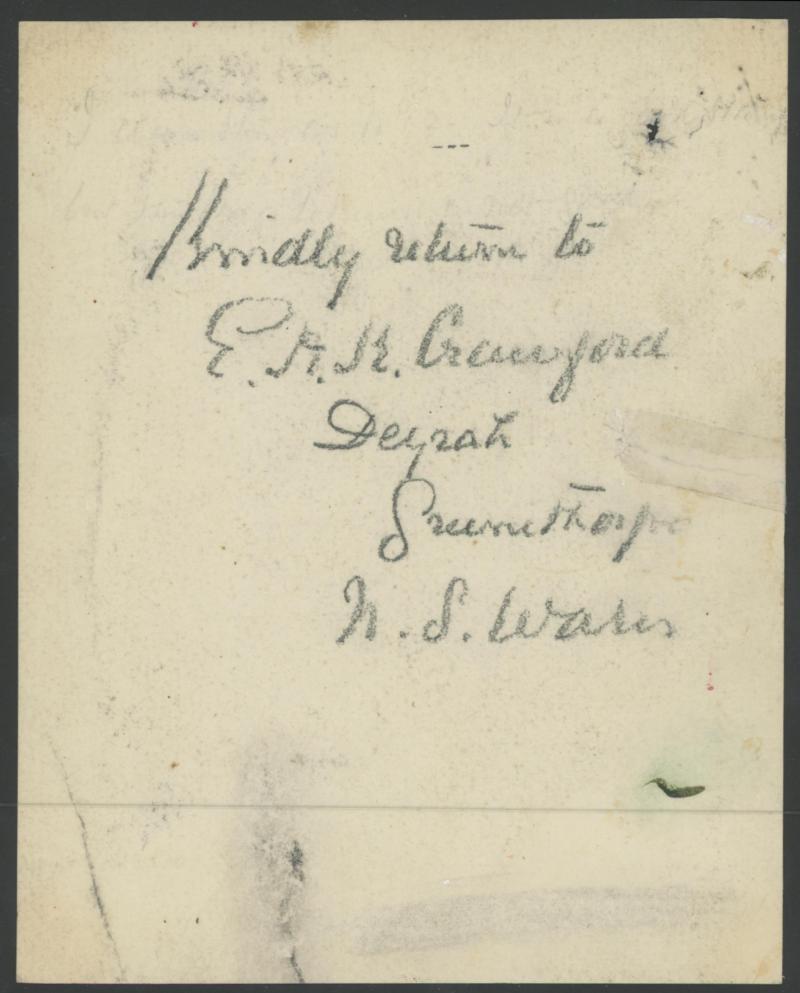 Kindly return to
E. R. K. Crawford
Deyrah
Greenethorpe
N. S. Wales